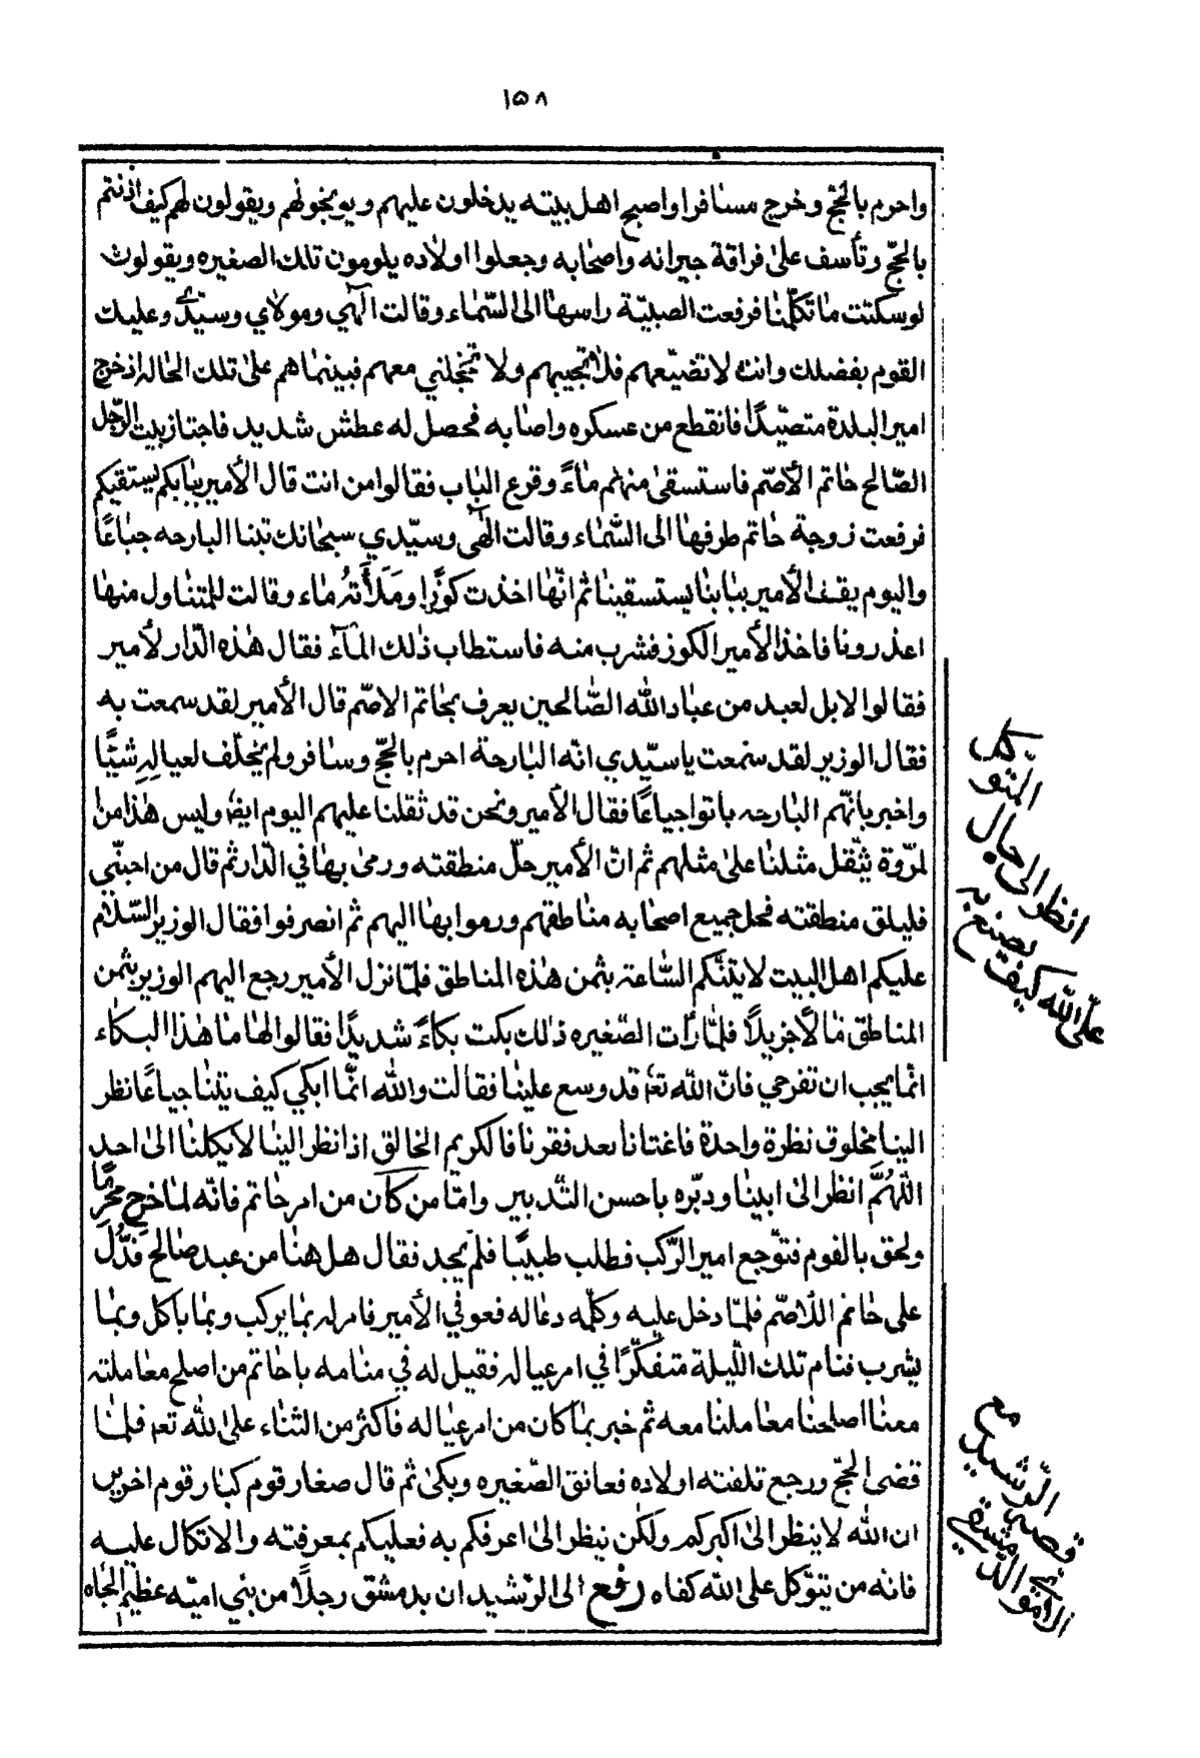 ١٥٨
واحرم بالحجّ وخرج مسافرا واصبح اهل بيته يدخلون عليهم ويوبخونهم ويقولون لهم كيف اذنتم
بالحجّ وتأسف على فراقة جيرانه واصحابه وجعلوا اولاده يلومون تلك الصغيره ويقولون
لوسكتت ما تكلّمنا فرفعت الصبيّة راسها الى السّماء وقالت الٓهي ومولاي وسيّدي وعليك
القوم بفضلك وانت لا تضيّعهم فلا تجيبهم ولا تخجلني معهم فبينماهم على تلك الحاله اذ خرج
امير البلدة متصيّدًا فانقطع من عسكره واصابه فحصل له عطش شديد فاجتاز ببيت الرّجل
الصّالح حاتم الأصّم فاستسقى منهم ماءً وقرع الباب فقالوا من انت قال الأمير ببابكم يستقيكم
فرفعت زوجة حاتم طرفها الى السّماء وقالت الٓهى وسيّدي سبحانك تبنا البارحه جباعًا
واليوم يقف الأمير ببابنا يستسقينا ثم انّها اخذت كوزًا ومَلَأَتهُ ماء وقالت للمتناول منها
اعذرونا فاخذ الأمير الكوز فشرب منه فاستطاب ذلك المآء فقال هذه الدّار لأمير
فقالوا لا بل لعبد من عباد الله الصّالحين يعرف بحاتم الاصّم قال الأمير لقد سمعت به
فقال الوزير لقد سمعت يا سيّدي انّه البارحة احرم بالحجّ وسافر ولم يخلّف لعيالِهِ شيئًا
واخبر بانّهم البارحه باتوا جياعًا فقال الأمير ونحن قد ثقلنا عليهم اليوم ايضا وليس هذا من
لمرّوة يثّقل مثلنا على مثلهم ثم انّ الأمير حلّ منطقته ورمى بها في الدّار ثم قال من احبّني
فليلق منطقته فحل جميع اصحابه مناطقهم ورموا بها اليهم ثم انصرفوا فقال الوزير السّلام
عليكم اهل البيت لا يتنّكم السّاعة بثمن هذه المناطق فلمّا نزل الأمير رجع اليهم الوزير بثمن
المناطق مالًا جزيلًا فلمّا رأت الصّغيره ذلك بكت بكاءً شديدًا فقالوا لها ما هذا البكاء
انّما يجب ان تفرحي فانّ الله تعا قد وسع علينا فقالت والله انّما ابكي كيف بتنا جياعًا نظر
الينا مخلوق نظرة واحدة فاغتانا بعد فقرنا فالكريم الخالق اذا نظر الينا لا يكلنا الى احد
اللّهُمَّ انظر الى ابينا ودبّره باحسن التّدبير وامّا من كان من امر حاتم فانّه لمّا خرج محرمًا
ولحق بالقوم فتوّجع امير الرّكب فطلب طبيبًا فلم يجد فقال هل هنا من عبد صالح فدُلَّ
على حاتم الأصّم فلمّا دخل عليه وكلّمه دعا له فعوفي الأمير فامر له بما يركب وبما ياكل وبما
يشرب فنام تلك اللّيلة متفكّرًا في امر عياله فقيل له في منامه يا حاتم من اصلح معاملته
معنا اصلحنا معاملنا معه ثم خبر بما كان من امر عياله فاكثر من الثناء على الله تعه فلمّا
قضى الحجّ ورجع تلقته اولاده فعانق الصّغيره وبكى ثم قال صغار قوم كبار قوم اخرين
ان الله لا ينظر الى اكبركم ولكن ينظر الى اعرفكم به فعليكم بمعرفته والاتكال عليه
فانه من يتوّكل على الله كفاه رفع الى الرّشيد ان بدمشق رجلًا من بني اميّه عظيم الجاه
انظر الى حال
المتوكل
على الله كيف يصنع به
قصة الرّشيد مع
الاموي الدّمشقي